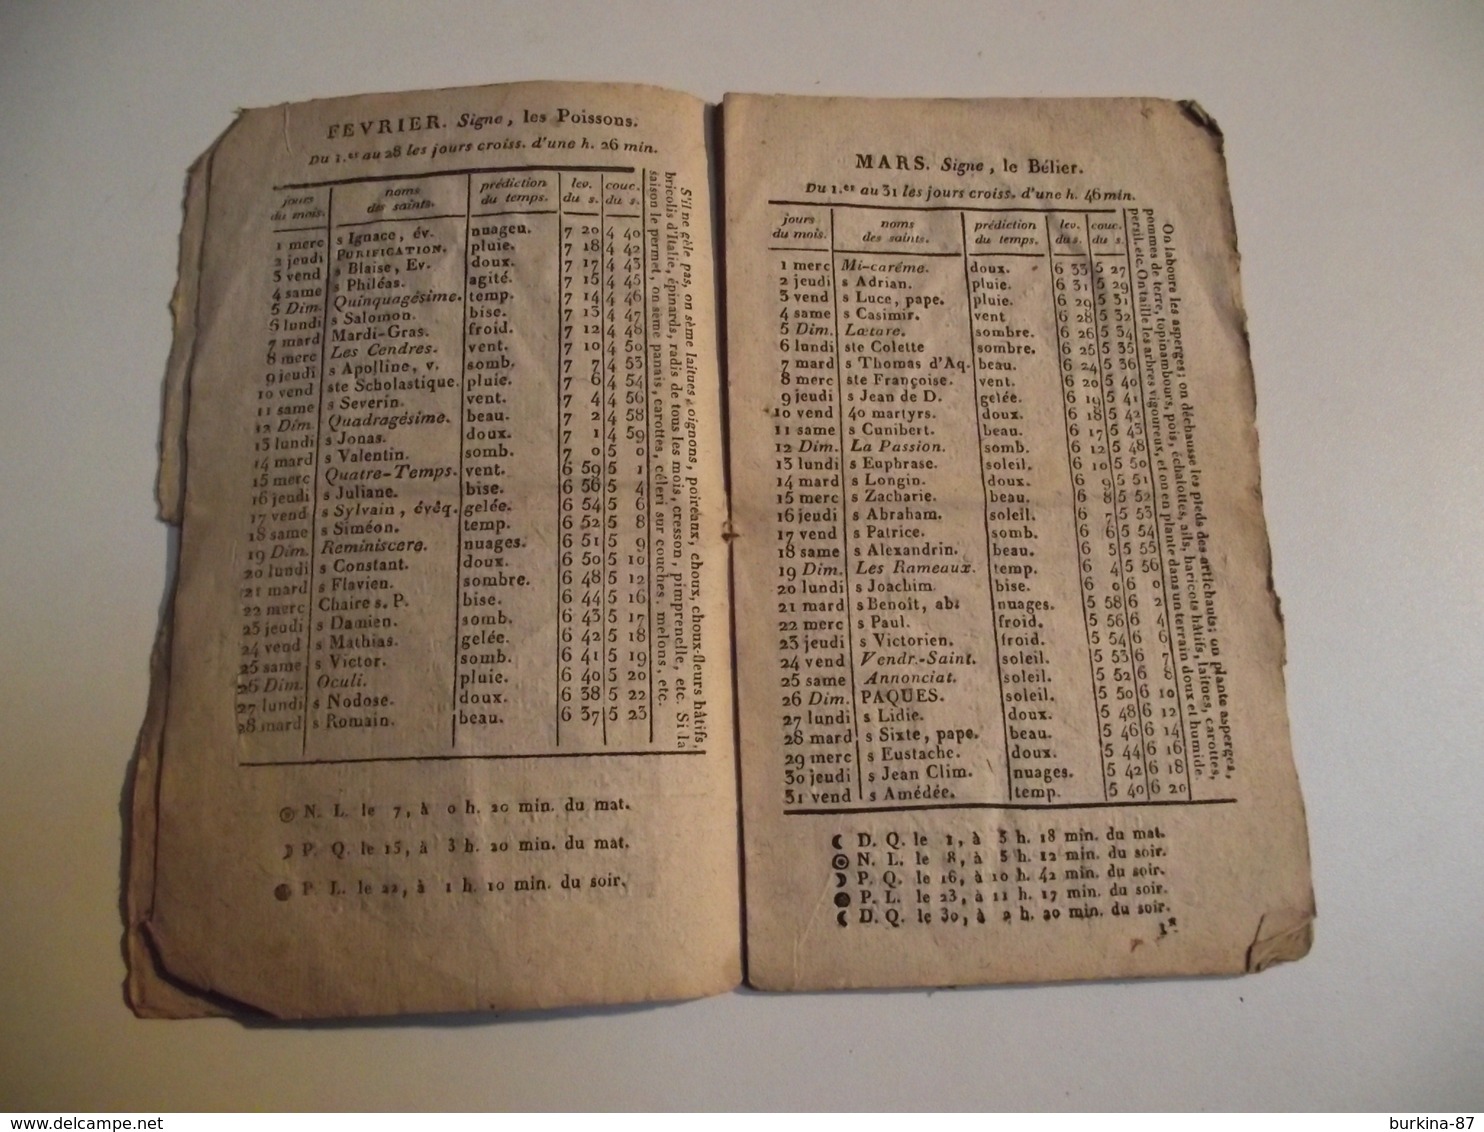 FEVRIER. Signe, les Poissons.
Du 1.er au 28 les jours croiss. d'une h. 26 min.
jours du mois. noms des saints. prédiction du temps. lev. du s. couc. du s.
1 merc s Ignace, év. nuageu. 7 20 4 40
2 jeudi PURIFICATION. pluie. 7 18 4 42
3 vend s Blaise, Ev. doux. 7 17 4 43
4 same s Philéas. agité. 7 15 4 45
5 Dim. Quinquagésime. temp. 7 14 4 46
6 lundi s Salomon. bise. 7 13 4 47
7 mard Mardi-Gras. froid. 7 12 4 48
8 merc Les Cendres. vent. 7 10 4 50
9 jeudi s Apolline, v. somb. 7 7 4 53
10 vend ste Scholastique. pluie. 7 6 4 54
11 same s Severin. vent. 7 4 4 56
12 Dim. Quadragésime. beau. 7 2 4 58
13 lundi s Jonas. doux. 7 1 4 59
14 mard s Valentin. somb. 7 0 5 0
15 merc Quatre-Temps. vent. 6 59 5 1
16 jeudi s Juliane. bise. 6 56 5 4
17 vend s Sylvain, évêq. gelée. 6 54 5 6
18 same s Siméon. temp. 6 52 5 8
19 Dim. Reminiscere. nuages. 6 51 5 9
20 lundi s Constant. doux. 6 50 5 10
21 mard s Flavien. sombre. 6 48 5 12
22 merc Chaire s. P. bise. 6 44 5 16
23 jeudi s Damien. somb. 6 43 5 17
24 vend s Mathias. gelée. 6 42 5 18
25 same s Victor. somb. 6 41 5 19
26 Dim. Oculi. pluie. 6 40 5 20
27 lundi s Nodose. doux. 6 38 5 22
28 mard s Romain. beau. 6 37 5 23
S'il ne gèle pas, on sème laitues, oignons, poireaux, choux, choux-fleurs hâtifs,
bricolis d'Italie, épinards, radis de tous les mois, cresson, pimprenelle, etc. Si la
saison le permet, on sème panais, carottes, céleri sur couches, melons, etc.
N. L. le 7, à 0 h. 20 min. du mat.
P. Q. le 15, à 3 h. 20 min. du mat.
P. L. le 22, à 1 h. 10 min. du soir.
MARS. Signe, le Bélier.
Du 1.er au 31 les jours croiss. d'une h. 46 min.
jours du mois. noms des saints. prédiction du temps. lev. du s. couc. du s.
1 merc Mi-carême. doux. 6 33 5 27
2 jeudi s Adrian. pluie. 6 31 5 29
3 vend s Luce, pape. pluie. 6 29 5 31
4 same s Casimir. vent 6 28 5 32
5 Dim. Lætare. sombre. 6 26 5 34
6 lundi ste Colette sombre. 6 25 5 35
7 mard s Thomas d'Aq. beau. 6 24 5 36
8 merc ste Françoise. vent. 6 20 5 40
9 jeudi s Jean de D. gelée. 6 19 5 41
10 vend 40 martyrs. doux. 6 18 5 42
11 same s Cunibert. beau. 6 17 5 43
12 Dim. La Passion. somb. 6 12 5 48
13 lundi s Euphrase. soleil. 6 10 5 50
14 mard s Longin. doux. 6 9 5 51
15 merc s Zacharie. beau. 6 8 5 52
16 jeudi s Abraham. soleil. 6 7 5 53
17 vend s Patrice. somb. 6 6 5 54
18 same s Alexandrin. beau. 6 5 5 55
19 Dim. Les Rameaux. temp. 6 4 5 56
20 lundi s Joachim. bise. 6 0 6 0
21 mard s Benoît, ab. nuages. 5 58 6 2
22 merc s Paul. froid. 5 56 6 4
23 jeudi s Victorien. froid. 5 54 6 6
24 vend Vendr.-Saint. soleil. 5 53 6 7
25 same Annonciat. soleil. 5 52 6 8
26 Dim. PAQUES. soleil. 5 50 6 10
27 lundi s Lidie. doux. 5 48 6 12
28 mard s Sixte, pape. beau. 5 46 6 14
29 merc s Eustache. doux. 5 44 6 16
30 jeudi s Jean Clim. nuages. 5 42 6 18
31 vend s Amédée. temp. 5 40 6 20
On laboure les asperges; on déchausse les pieds des artichauts; on plante asperges,
pommes de terre, topinambours, pois, échalottes, ails, haricots hâtifs, laitues, carottes,
persil, etc. On taille les arbres vigoureux, et on en plante dans un terrain doux et humide.
D. Q. le 1, à 5 h. 18 min. du mat.
N. L. le 8, à 5 h. 12 min. du soir.
P. Q. le 16, à 10 h. 42 min. du soir.
P. L. le 23, à 11 h. 17 min. du soir.
D. Q. le 30, à 2 h. 20 min. du soir.
1*
burkina-87
www.delcampe.net